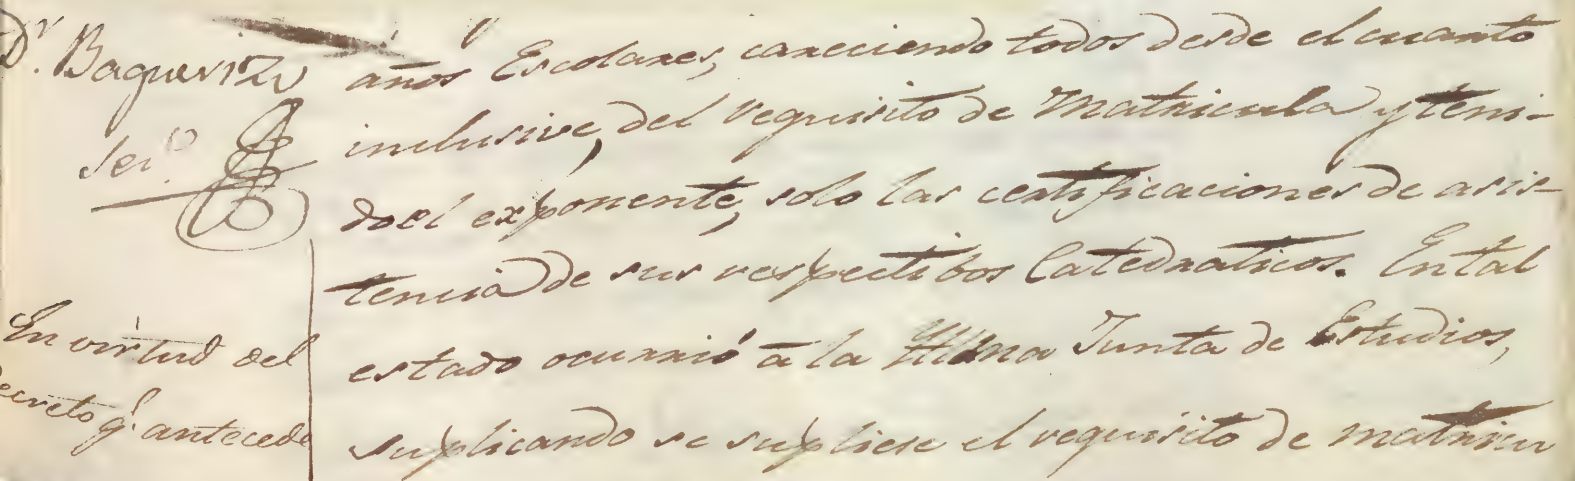 Dr. Baquerizo
Sei°.
En virtud del
decreto q.e antecede
años Escolares, careciendo todos desde el cuarto
inclusive, del requisito de Matricula y teni-
do el exponente, solo las certificaciones de asis-
tencia de sus respectibos Catedraticos. En tal
estado ocurrió a la Junta de Estudios,
suplicando se supliese el requisito de matricu